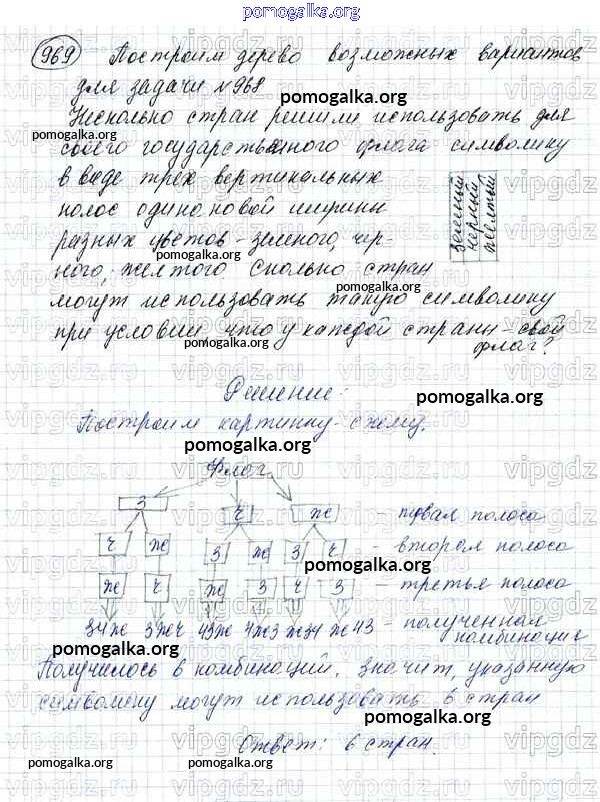 pomogalka.org
969 Построим дерево возможных вариантов
для задачи №968
pomogalka.org
Несколько стран решили использовать для
pomogalka.org
своего государственного флага символику
в виде трех вертикальных
полос одинаковой ширины
разных цветов – зеленого, чер-
ного, желтого Сколько стран
зеленый
черный
желтый
могут использовать такую символику
pomogalka.org
при условии, что у каждой страны – свой
флаг?
pomogalka.org
Решение:
pomogalka.org
Построим картинку-схему.
pomogalka.org
Флаг
З Ч Ж – первая полоса
Ч Ж З Ж З Ч – вторая полоса
pomogalka.org
Ж Ч Ж З Ч З – третья полоса
ЗЧЖ ЗЖЧ ЧЗЖ ЧЖЗ ЖЗЧ ЖЧЗ – полученная
комбинация
pomogalka.org
Получилось 6 комбинаций. Значит, указанную
символику могут использовать 6 стран
pomogalka.org
Ответ: 6 стран.
pomogalka.org
pomogalka.org